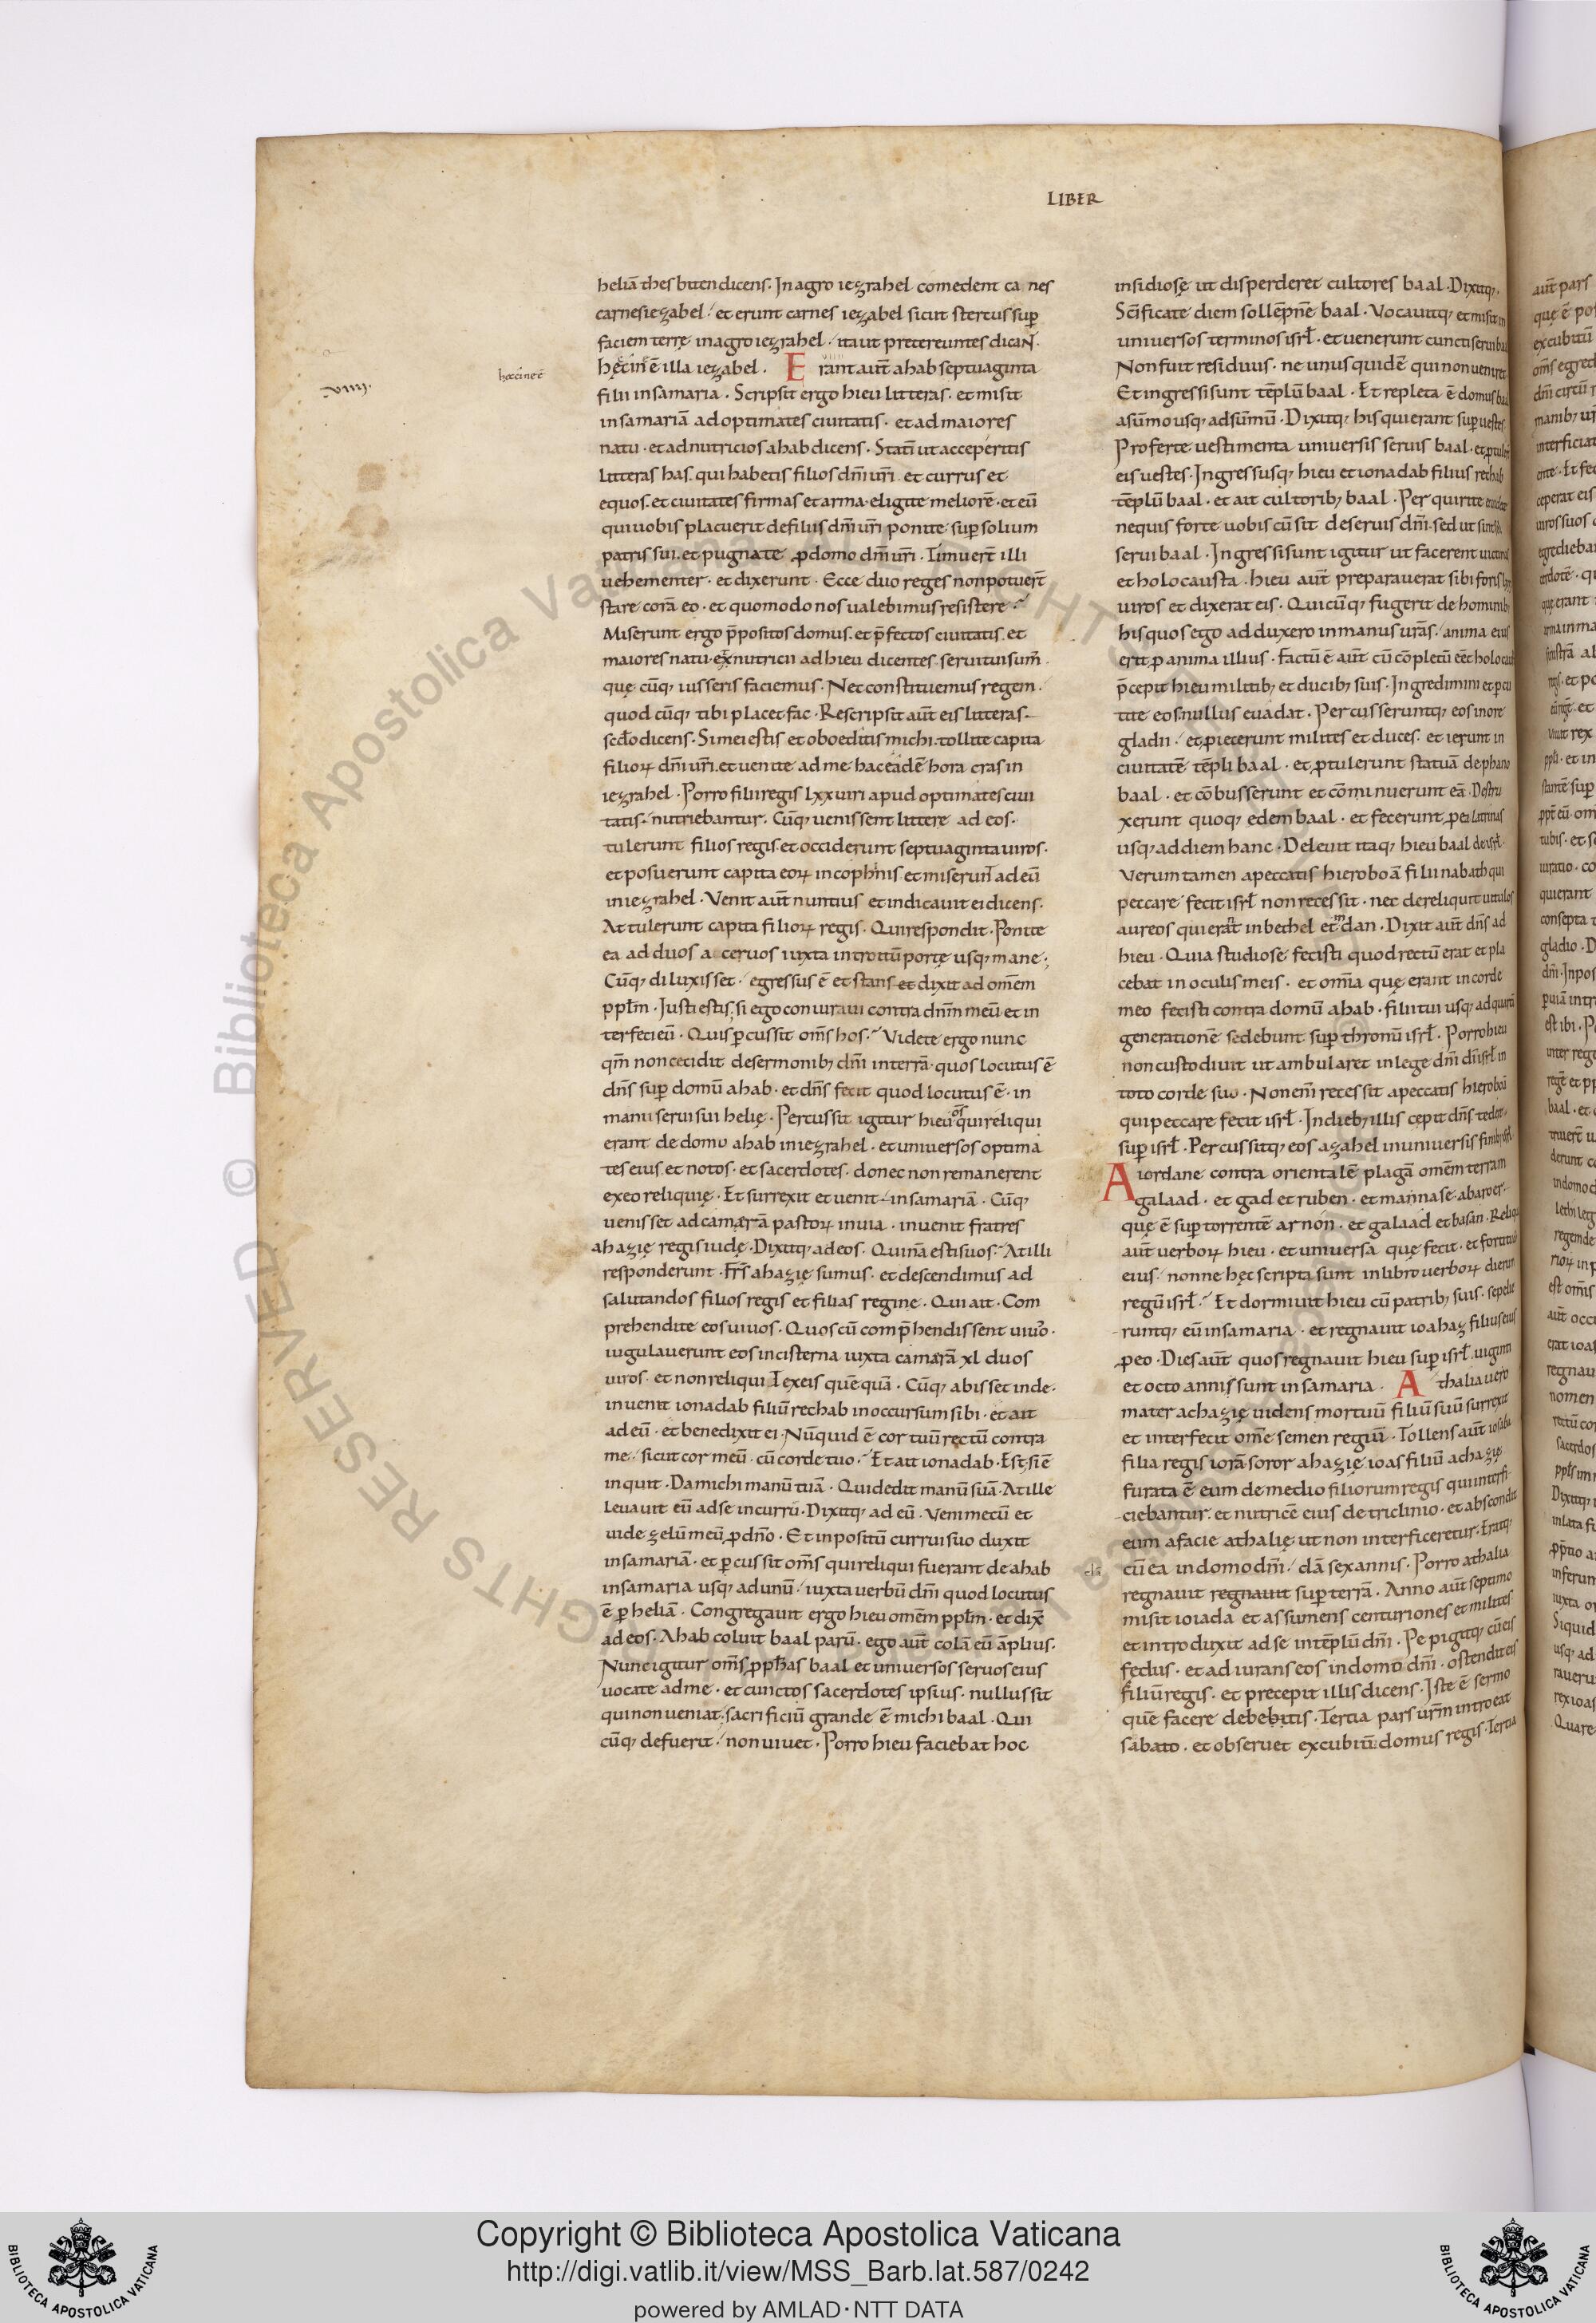 LIBER
heliā thesbiten dicens. In agro iezrahel comedent ca nes
carnes iezabel. et erunt carnes iezabel sicut stercus sup
faciem terrę in agro iezrahel. ita ut pretereuntes dicaN.
hęcin ē illa iezabel. Erant aūt ahab septuaginta
hęccine ē
VIIII.
filii in samaria. Scripsit ergo hieu litteras. et misit
in samariā ad optimates ciuitatis. et ad maiores
natu. et ad nutricios ahab dicens. Statī ut acceperitis
litteras has. qui habetis filios dn̄i ur̄i. et currus et
equos. et ciuitates firmas et arma. eligite meliorē. et eū
qui uobis placuerit de filiis dn̄i ur̄i ponite sup solium
patris sui. et pugnate p domo dn̄i ur̄i. Timuert̄ illi
uehementer. et dixerunt. Ecce duo reges non potuert̄
stare corā eo. et quomodo nos ualebimus resistere?
Miserunt ergo p̄positos domus. et p̄fectos ciuitatis. et
maiores natu. et nutricii ad hieu dicentes. serui tui sum̄.
quę cūq; iusseris faciemus. Nec constituemus regem.
quod cūq; tibi placet fac. Rescripsit aūt eis litteras
sc̄do dicens. Si mei estis et oboeditis michi. tollite capita
filioꝝ dn̄i ur̄i. et uenite ad me hac eadē hora cras in
iezrahel. Porro filii regis lxx uiri apud optimates ciui
tatis. nutriebantur. Cūq; uenissent littere ad eos.
tulerunt filios regis. et occiderunt septuaginta uiros.
et posuerunt capita eoꝝ in cophinis et miserunt ad eū
in iezrahel. Venit aūt nuntius et indicauit ei dicens.
Attulerunt capita filioꝝ regis. Qui respondit. Ponite
ea ad duos aceruos iuxta introitū portę usq; mane;
Cūq; diluxisset. egressus ē et stans et dixit ad omēm
ppl̄m. Iusti estis; si ego coniuraui contra dn̄m meū et in
terfeci eū. Quis pcussit om̄s hos? Videte ergo nunc
qm̄ non cecidit de sermonib; dn̄i in terrā. quos locutus ē
dn̄s sup domū ahab. et dn̄s fecit quod locutus ē. in
manu serui sui helię. Percussit igitur hieu os̄ qui reliqui
erant de domo ahab in iezrahel. et uniuersos optima
tes eius et notos. et sacerdotes. donec non remanerent
ex eo reliquię. Et surrexit et uenit in samariā. Cūq;
uenisset ad camerā pastoꝝ in uia. inuenit fratres
ahazię regis iudę. Dixitq; ad eos. Quinā estis uos? At illi
responderunt. Fr̄s ahazię sumus. et descendimus ad
salutandos filios regis et filias regine. Qui ait. Com
prehendite eos uiuos. Quos cū comp̄hendissent uiuos.
iugulauerunt eos in cisterna iuxta camarā xl duos
uiros. et non reliquiT ex eis quē quā. Cūq; abisset inde.
inuenit ionadab filiū rechab in occursum sibi. et ait
ad eū. et benedixit ei. Nūquid ē cor tuū rectū contra
me. sicut cor meū. cū corde tuo? Et ait ionadab. Est; si ē
inquit. Da michi manū tuā. Qui dedit manū suā. At ille
leuauit eū ad se in currū. Dixitq; ad eū. Veni mecū et
uide zelū meū p dn̄o. Et inpositū currui suo duxit
in samariā. et p cussit om̄s qui reliqui fuerant de ahab
in samaria usq; ad unū. iuxta uerbū dn̄i quod locutus
ē p heliā. Congregauit ergo hieu omēm ppl̄m. et dix̄
ad eos. Ahab coluit baal parū. ego aūt colā eū āplius.
Nunc igitur om̄s pph̄as baal et uniuersos seruos eius
uocate ad me. et cunctos sacerdotes ipsius. nullus sit
qui non ueniat. sacrificiū grande ē michi baal. Qui
cūq; defuerit. non uiuet. Porro hieu faciebat hoc
insidiosę ut disperderet cultores baal. Dixitq;.
Sc̄ificate diem sollēpnē baal. Vocauitq; et misit in
uniuersos terminos isrł. et uenerunt cuncti serui baal
Non fuit residuus. ne unus quidē qui non ueniret
Et ingressi sunt tēplū baal. Et repleta ē domus baal
a sūmo usq; ad sūmū. Dixitq; his qui erant sup uestes
Proferte uestimenta uniuersis seruis baal. et ptuler̄
eis uestes. Ingressusq; hieu et ionadab filius rechab
tēplū baal. et ait cultorib; baal. Perquirite et uidete
ne quis forte uobis cū sit de seruis dn̄i. sed ut sint soli
serui baal. Ingressi sunt igitur ut facerent uictimas
et holocausta. hieu aūt preparauerat sibi foris lxxx
uiros et dixerat eis. Quicūq; fugerit de hominib;
his quos ego adduxero in manus ur̄as. anima eius
erit p anima illius. Factū ē aūt cū cōpletū eēt holocaustū
p̄cepit hieu militib; et ducib; suis. Ingredimini et pcu
tite eos nullus euadat. Percusseruntq; eos in ore
gladii. et piecerunt milites et duces. et ierunt in
ciuitatē tēpli baal. et ptulerunt statuā de phano
baal. et cōbusserunt et cōminuerunt eā. Destru
xerunt quoq; edem baal. et fecerunt p ea latrinas
usq; ad diem hanc. Deleuit itaq; hieu baal de isrł.
Verum tamen a peccatis hieroboā filii nabath qui
peccare fecit isrł non recessit. nec dereliquit uitulos
aureos qui erant in bethel et in dan. Dixit aūt dn̄s ad
hieu. Quia studiose fecisti quod rectū erat et pla
cebat in oculis meis. et om̄ia quę erant in corde
meo fecisti contra domū ahab. filii tui usq; ad quartā
generationē sedebunt sup thronū isrł. Porro hieu
non custodiuit ut ambularet in lege dn̄i dī isrł in
toto corde suo. Non enī recessit a peccatis hieroboā
qui peccare fecit isrł. In dieb; illis cępit dn̄s tedere
sup isrł. Percussitq; eos azahel in uniuersis finib; isrł.
A iordane contra orientalē plagā omēm terram
galaad. et gad et ruben. et mannase. ab aroer.
quę ē sup torrentē arnon. et galaad et basan. Reliqua
aūt uerboꝝ hieu. et uniuersa quę fecit. et fortitudo
eius. nonne hęc scripta sunt in libro uerboꝝ dierum
regū isrł? Et dormiuit hieu cū patrib; suis. sepelie
runtq; eū in samaria. et regnauit ioahaz filius eius
p eo. Dies aūt quos regnauit hieu sup isrł. uiginti
et octo annis sunt in samaria. Athalia uero
mater achazię uidens mortuū filiū suū surrexit
et interfecit omē semen regiū. Tollens aūt iosaba
filia regis iorā soror ahazię ioas filiū achazię
furata ē eum de medio filiorum regis qui interfi
ciebantur. et nutricē eius de triclinio. et abscondit
eum a facie athalię. ut non interficeretur. Eratq;
cū ea in domo dn̄i. clā sex annis. Porro athalia
regnauit regnauit sup terrā. Anno aūt septimo
misit ioiada et assumens centuriones et milites.
et introduxit ad se in tēplū dn̄i. Pepigitq; cū eis
fędus. et adiurans eos in domo dn̄i. ostendit eis
filiū regis. et precepit illis dicens. Iste ē sermo
quē facere debebitis. Tertia pars ur̄m introeat
sabato. et obseruet excubiū domus regis. Tertia
Copyright © Biblioteca Apostolica Vaticana
http://digi.vatlib.it/view/MSS_Barb.lat.587/0242
powered by AMLAD·NTT DATA
BIBLIOTECA APOSTOLICA VATICANA
BIBLIOTECA APOSTOLICA VATICANA